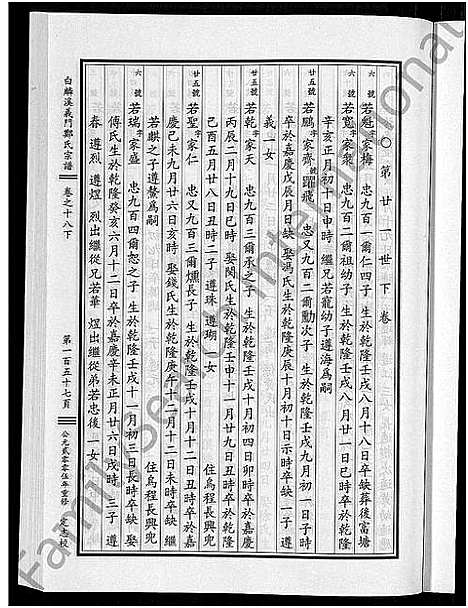 ○第廿一世下卷
六號 若魁 字家梅 忠九百一爾仁四子 生於乾隆壬戌八月十八日卒缺葬後富塘
六號 若寬 字家衆 忠九百二爾祖幼子 生於乾隆壬戌八月廿一日巳時卒於乾隆
辛亥正月初十日申時 繼兄若龍幼子遵海爲嗣
廿五號 若鵬 字家齊 號躍飛 忠又九百二爾勳次子 生於乾隆壬戌九月初一日子時
卒於嘉慶戊辰月日缺 娶馮氏生於乾隆庚辰十月初十日示時卒缺 一子 遵
義 一女
廿五號 若乾 字家天 忠九百三爾承之子 生於乾隆壬戌十月初四日卯時卒於嘉慶
丙辰二月十九日巳時 娶閔氏生於乾隆壬申十一月廿九日丑時卒於乾隆
己酉五月廿八日丑時 二子 遵珠 遵瑚 一女 住烏程長興兜
廿五號 若聖 字家仁 忠又九百三爾燻長子 生於乾隆壬戌十月十二日丑時卒於嘉
慶己未九月廿六日亥時 娶錢氏生於乾隆庚午十月十二日未時卒缺 繼
若麒之子遵鰲爲嗣 住烏程長興兜
六號 若瑞 字家盛 忠九百四爾恕之子 生於乾隆壬戌十一月初三日長時卒缺 娶
傅氏生於乾隆癸亥六月十二日卒於嘉慶辛未正月廿六日戌時 三子 遵
春 遵烈 遵煜 烈出繼從兄若華 煜出繼從弟若忠後 一女
白麟溪義門鄭氏宗譜 卷之十八下 第一百五十七頁 公元貳零零伍年重修 定志校